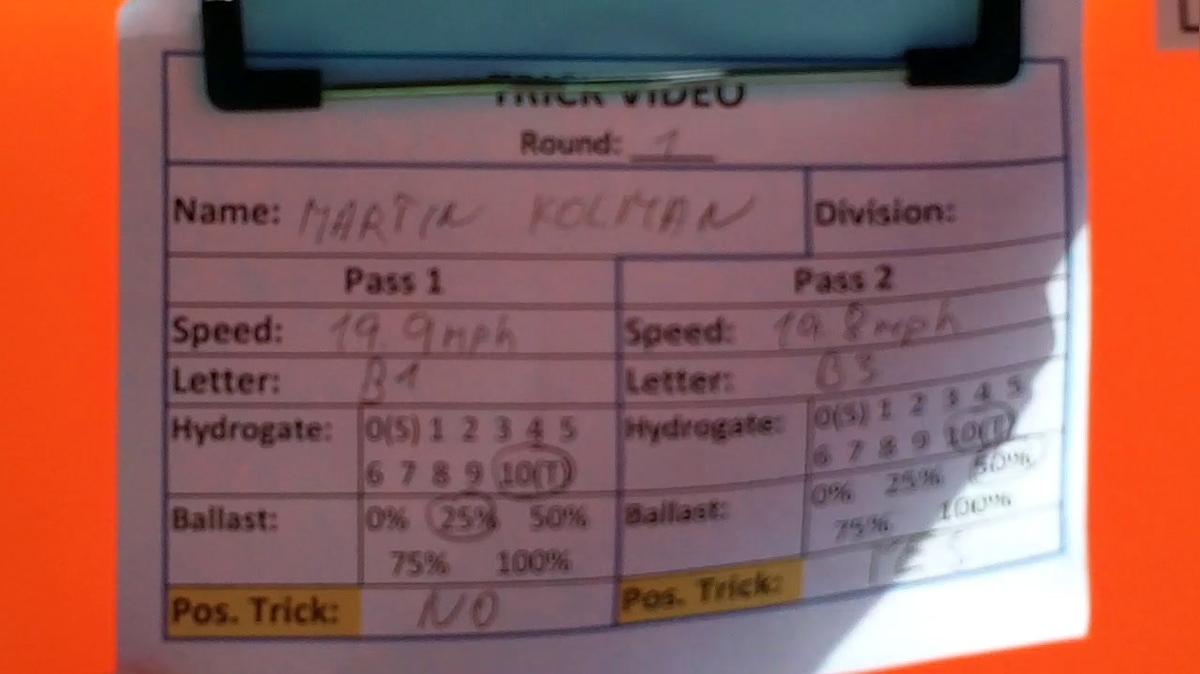 TRICK VIDEO
Round: 1
Name: MARTIN KOLMAN Division:
Pass 1 Pass 2
Speed: 19.9mph Speed: 19.8mph
Letter: B1 Letter: B3
Hydrogate: 0(S) 1 2 3 4 5 Hydrogate: 0(S) 1 2 3 4 5
6 7 8 9 10(T) 6 7 8 9 10(T)
Ballast: 0% 25% 50% Ballast: 0% 25% 50%
75% 100% 75% 100%
Pos. Trick: NO Pos. Trick: YES